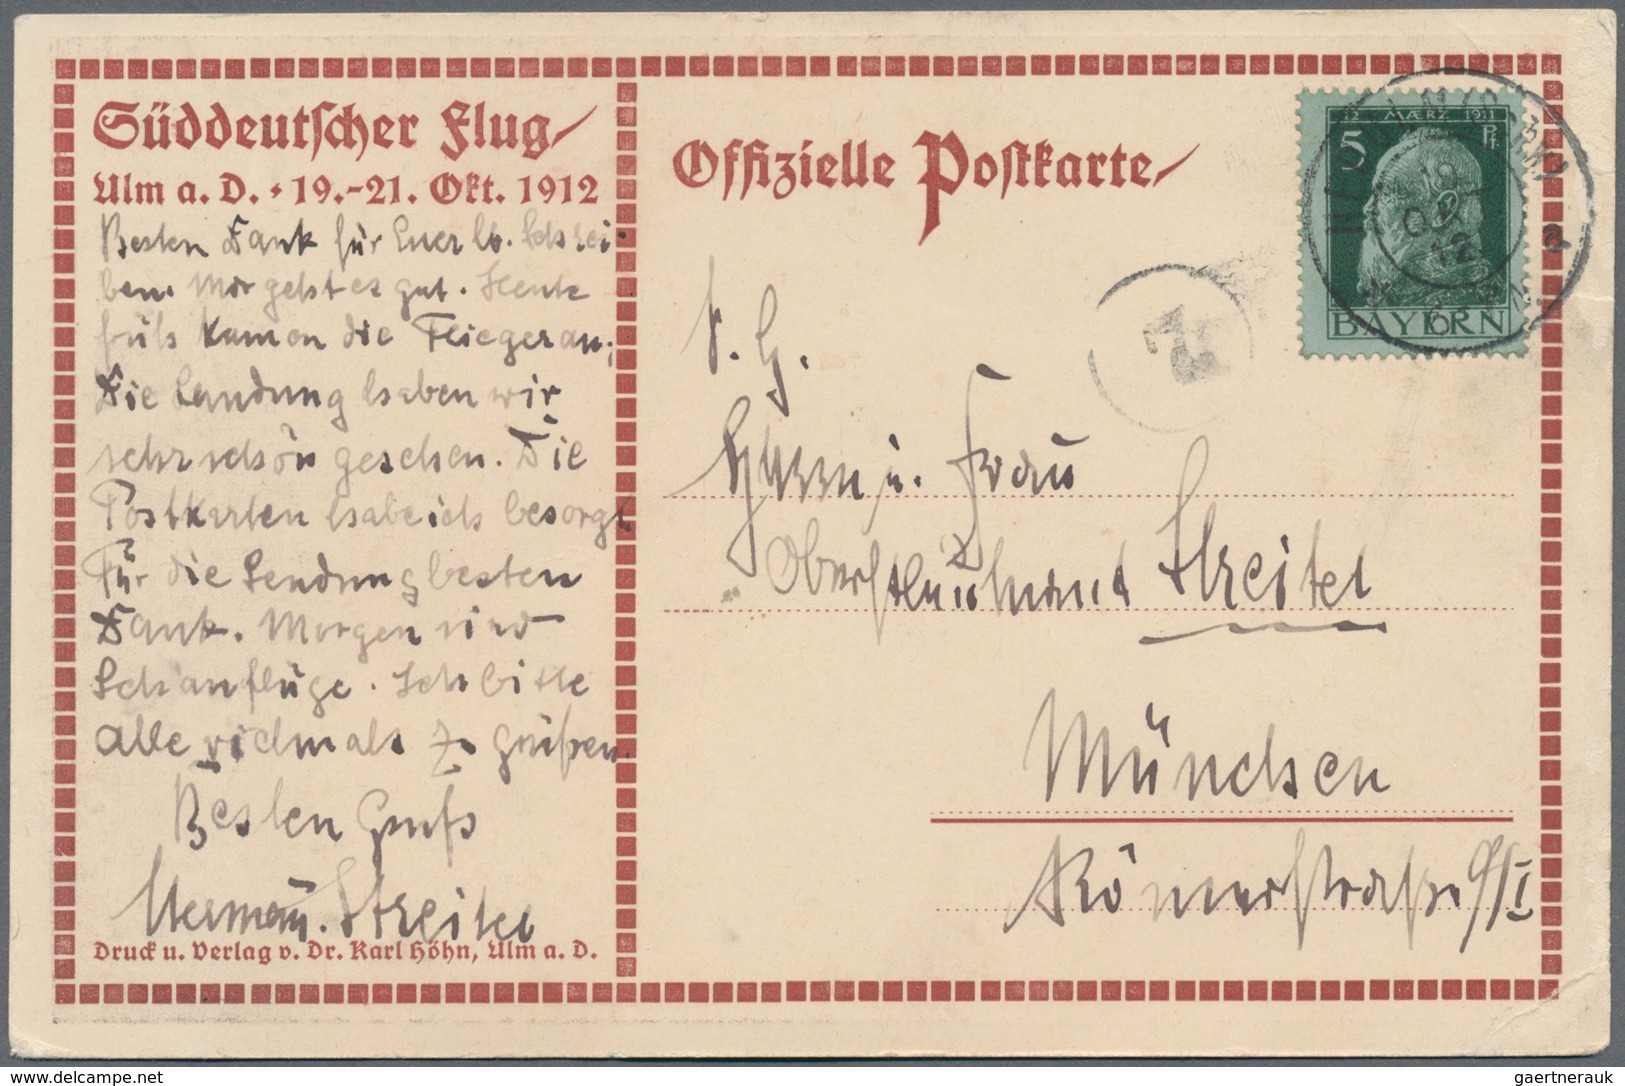 Süddeutscher Flug
Ulm a. D. • 19.-21. Okt. 1912
Besten Dank für Euer lb. Schrei-
ben. Mir geht es gut. Heute
früh kamen die Flieger an;
Die Landung haben wir
sehr schön gesehen. Die
Postkarten habe ich besorgt
Für die Sendung besten
Dank. Morgen sind
Schauflüge. Ich bitte
alle vielmals zu grüßen.
Besten Gruß
Hermann Streitel
Druck u. Verlag v. Dr. Karl Höhn, Ulm a. D.
Offizielle Postkarte
12 MÆRZ 1911
5 Pf.
BAYERN
19
OKT
12
S. H.
Herrn u. Frau
Oberstleutnant Streitel
München
Römerstraße
gaertnerauk